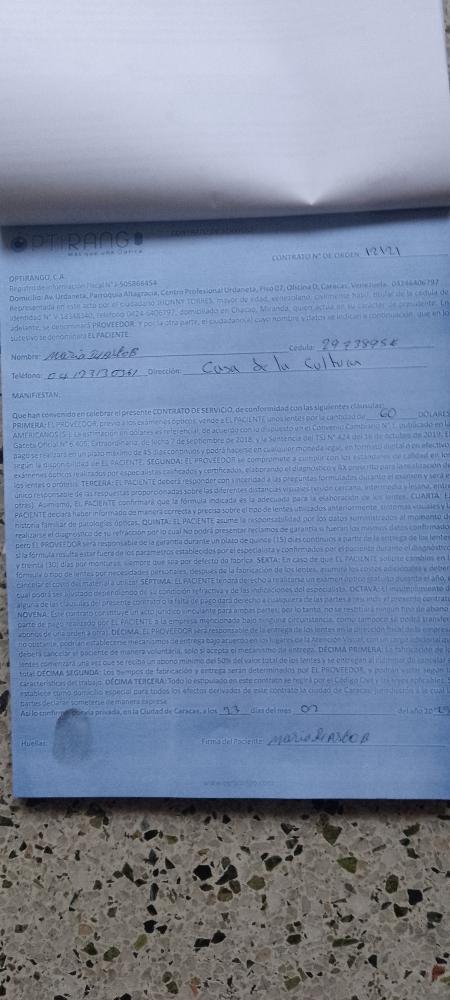 OPTIRANGO
Más que una Óptica
CONTRATO N° DE ORDEN 12121
OPTIRANGO, C.A.
Registro de Información Fiscal N° J-505866454
Domicilio: Av. Urdaneta, Parroquia Altagracia, Centro Profesional Urdaneta, Piso 07, Oficina D, Caracas, Venezuela. 04246406797
Representada en este acto por el ciudadano JHONNY TORRES, mayor de edad, venezolano, civilmente hábil, titular de la cédula de
identidad N° V-18348340, teléfono 0424-6406797, domiciliado en Chacao, Miranda, quien actúa en su carácter de presidente. En
adelante, se denominará PROVEEDOR. Y por la otra parte, el ciudadano(a) cuyo nombre y datos se indican a continuación, que en lo
sucesivo se denominará EL PACIENTE:
Nombre: Cédula:
Teléfono: Dirección: Casa de la Cultura
MANIFIESTAN:
Que han convenido en celebrar el presente CONTRATO DE SERVICIO, de conformidad con las siguientes cláusulas:
PRIMERA: EL PROVEEDOR, previo a los exámenes ópticos, vende a EL PACIENTE unos lentes por la cantidad de 60 DÓLARES
AMERICANOS ($). La estimación en dólares es referencial, de acuerdo con lo dispuesto en el Convenio Cambiario N° 1, publicado en
Gaceta Oficial N° 6.405, Extraordinaria, de fecha 7 de septiembre de 2018, y la Sentencia del TSJ N° 424 del 16 de octubre de 2019. El
pago se realizará en un plazo máximo de 45 días continuos y podrá hacerse en cualquier moneda legal, en formato digital o en efectivo
según la disponibilidad de EL PACIENTE. SEGUNDA: EL PROVEEDOR se compromete a cumplir con los estándares de calidad en los
exámenes ópticos realizados por especialistas calificados y certificados, elaborando el diagnóstico y RX prescrito para la realización de
los lentes o prótesis. TERCERA: EL PACIENTE deberá responder con sinceridad a las preguntas formuladas durante el examen y será el
único responsable de las respuestas proporcionadas sobre las diferentes distancias visuales (visión cercana, intermedia y lejana, entre
otras). Asimismo, EL PACIENTE confirmará que la fórmula indicada es la adecuada para la elaboración de los lentes. CUARTA: EL
PACIENTE declara haber informado de manera correcta y precisa sobre el tipo de lentes utilizados anteriormente, síntomas visuales y la
historia familiar de patologías ópticas. QUINTA: EL PACIENTE asume la responsabilidad por los datos suministrados al momento de
realizarse el diagnóstico de su refracción por lo cual No podrá presentar reclamos de garantía si fueran los mismos datos confirmados
pero EL PROVEEDOR será responsable de la garantía durante un plazo de quince (15) días continuos a partir de la entrega de los lentes
si la fórmula resulta estar fuera de los parámetros establecidos por el especialista y confirmados por el paciente durante el diagnóstico
y treinta (30) días por monturas, siempre que sea por defecto de fábrica. SEXTA: En caso de que EL PACIENTE solicite cambios en
fórmula o tipo de lentes por necesidades personales, después de la fabricación de los lentes, asumirá los costos adicionales y deberá
cancelar el costo del material a utilizar. SÉPTIMA: EL PACIENTE tendrá derecho a realizarse un examen óptico gratuito durante el año,
cual podrá ser ajustado dependiendo de su condición refractiva y de las indicaciones del especialista. OCTAVA: El incumplimiento de
alguna de las cláusulas del presente contrato o la falta de pago dará derecho a cualquiera de las partes a rescindir el presente contrato
NOVENA: Este contrato constituye un acto jurídico vinculante para ambas partes; por lo tanto, no se restituirá ningún tipo de abono
parte de pago realizado por EL PACIENTE a la empresa mencionada bajo ninguna circunstancia, como tampoco se podrá transferir
abonos de una orden a otra. DÉCIMA: EL PROVEEDOR será responsable de la entrega de los lentes en la dirección fiscal de la empresa
no obstante, podrán establecerse mecanismos de entrega bajo acuerdo en los lugares de la Atención Visual, con un cargo adicional que
deberá cancelar el paciente de manera voluntaria, solo si acepta el mecanismo de entrega. DÉCIMA PRIMERA: La fabricación de
lentes comenzará una vez que se reciba un abono mínimo del 50% del valor total de los lentes y se entregan al momento de cancelar
total DÉCIMA SEGUNDA: Los tiempos de fabricación y entrega serán determinados por EL PROVEEDOR, y podrán variar según
características del trabajo. DÉCIMA TERCERA: Todo lo estipulado en este contrato se regirá por el Código Civil y las leyes aplicables. Se
establece como domicilio especial para todos los efectos derivados de este contrato la ciudad de Caracas, jurisdicción a la cual
partes declaran someterse de manera expresa.
Así lo confirman por vía privada, en la Ciudad de Caracas, a los días del mes 07 del año 20
Huellas: Firma del Paciente:
www.optirango.com